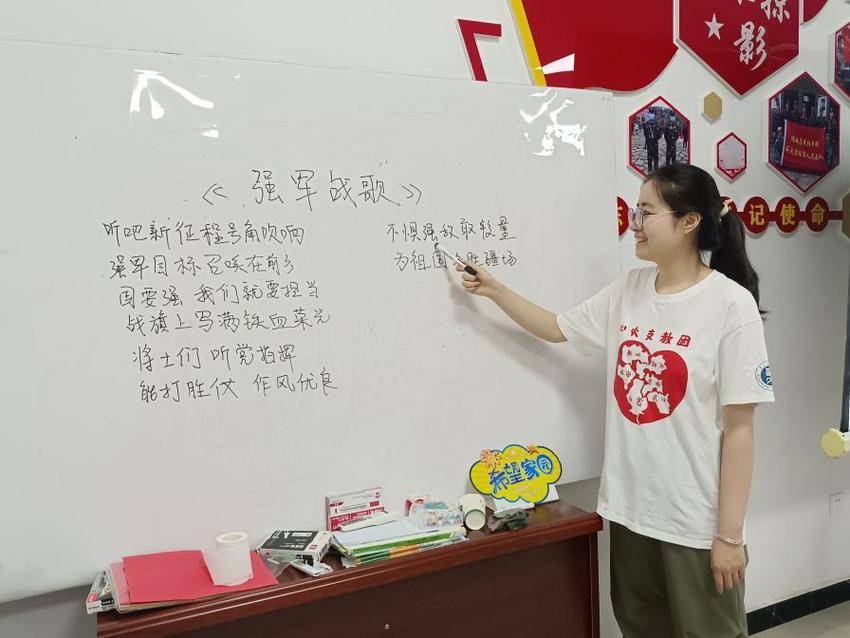 《强军战歌》
听吧新征程号角吹响
强军目标召唤在前方
国要强 我们就要担当
战旗上写满铁血荣光
将士们 听党指挥
能打胜仗 作风优良
不惧强敌敢较量
为祖国决胜疆场
影
记使命
火支教团
希望家园